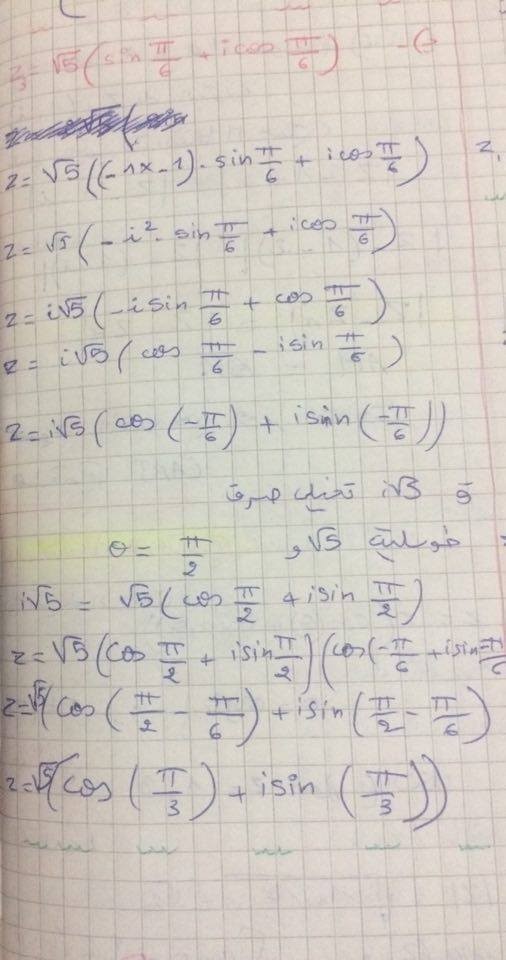 z₃ = √5 (sin π/6 + i cos π/6) -ج
z = √5 ((-1x-1) · sin π/6 + i cos π/6)
z = √5 (-i² · sin π/6 + i cos π/6)
z = i√5 (-i sin π/6 + cos π/6)
z = i√5 (cos π/6 - i sin π/6)
z = i√5 (cos (-π/6) + i sin (-π/6))
i√3
θ = π/2 , √5
i√5 = √5 (cos π/2 + i sin π/2)
z = √5 (cos π/2 + i sin π/2) (cos (-π/6 + i sin -π/6
z = √5 (cos (π/2 - π/6) + i sin (π/2 - π/6)
z = √5 (cos (π/3) + i sin (π/3))